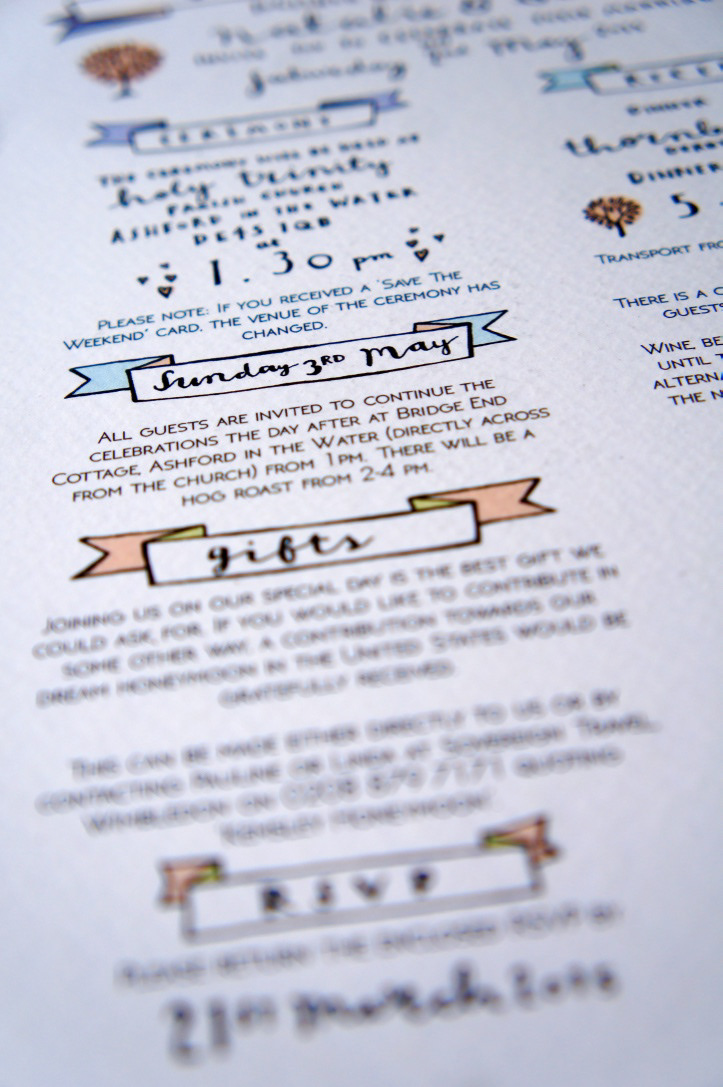 Saturday
May
CEREMONY
THE CEREMONY WILL BE HELD AT
holy trinity
PARISH CHURCH
ASHFORD IN THE WATER
DE45 1QB
at
1.30 pm
PLEASE NOTE: IF YOU RECEIVED A 'SAVE THE
WEEKEND' CARD, THE VENUE OF THE CEREMONY HAS
CHANGED.
Sunday 3RD May
ALL GUESTS ARE INVITED TO CONTINUE THE
CELEBRATIONS THE DAY AFTER AT BRIDGE END
COTTAGE, ASHFORD IN THE WATER (DIRECTLY ACROSS
FROM THE CHURCH) FROM 1PM. THERE WILL BE A
HOG ROAST FROM 2-4 PM.
gifts
JOINING US ON OUR SPECIAL DAY IS THE BEST GIFT WE
COULD ASK FOR. IF YOU WOULD LIKE TO CONTRIBUTE IN
SOME OTHER WAY, A CONTRIBUTION TOWARDS OUR
DREAM HONEYMOON IN THE UNITED STATES WOULD BE
GRATEFULLY RECEIVED.
THIS CAN BE MADE EITHER DIRECTLY TO US OR BY
CONTACTING PAULINE OR LINDA AT SOVEREIGN TRAVEL,
WIMBLEDON ON 0208 879 7171 QUOTING
HONEYMOON
RSVP
PLEASE RETURN THE ENCLOSED RSVP BY
21ST March
RECEP
DINNER
thornb
DINNER
5.
TRANSPORT FRO
THERE IS A C
GUESTS
WINE, BE
UNTIL T
ALTERNA
THE N